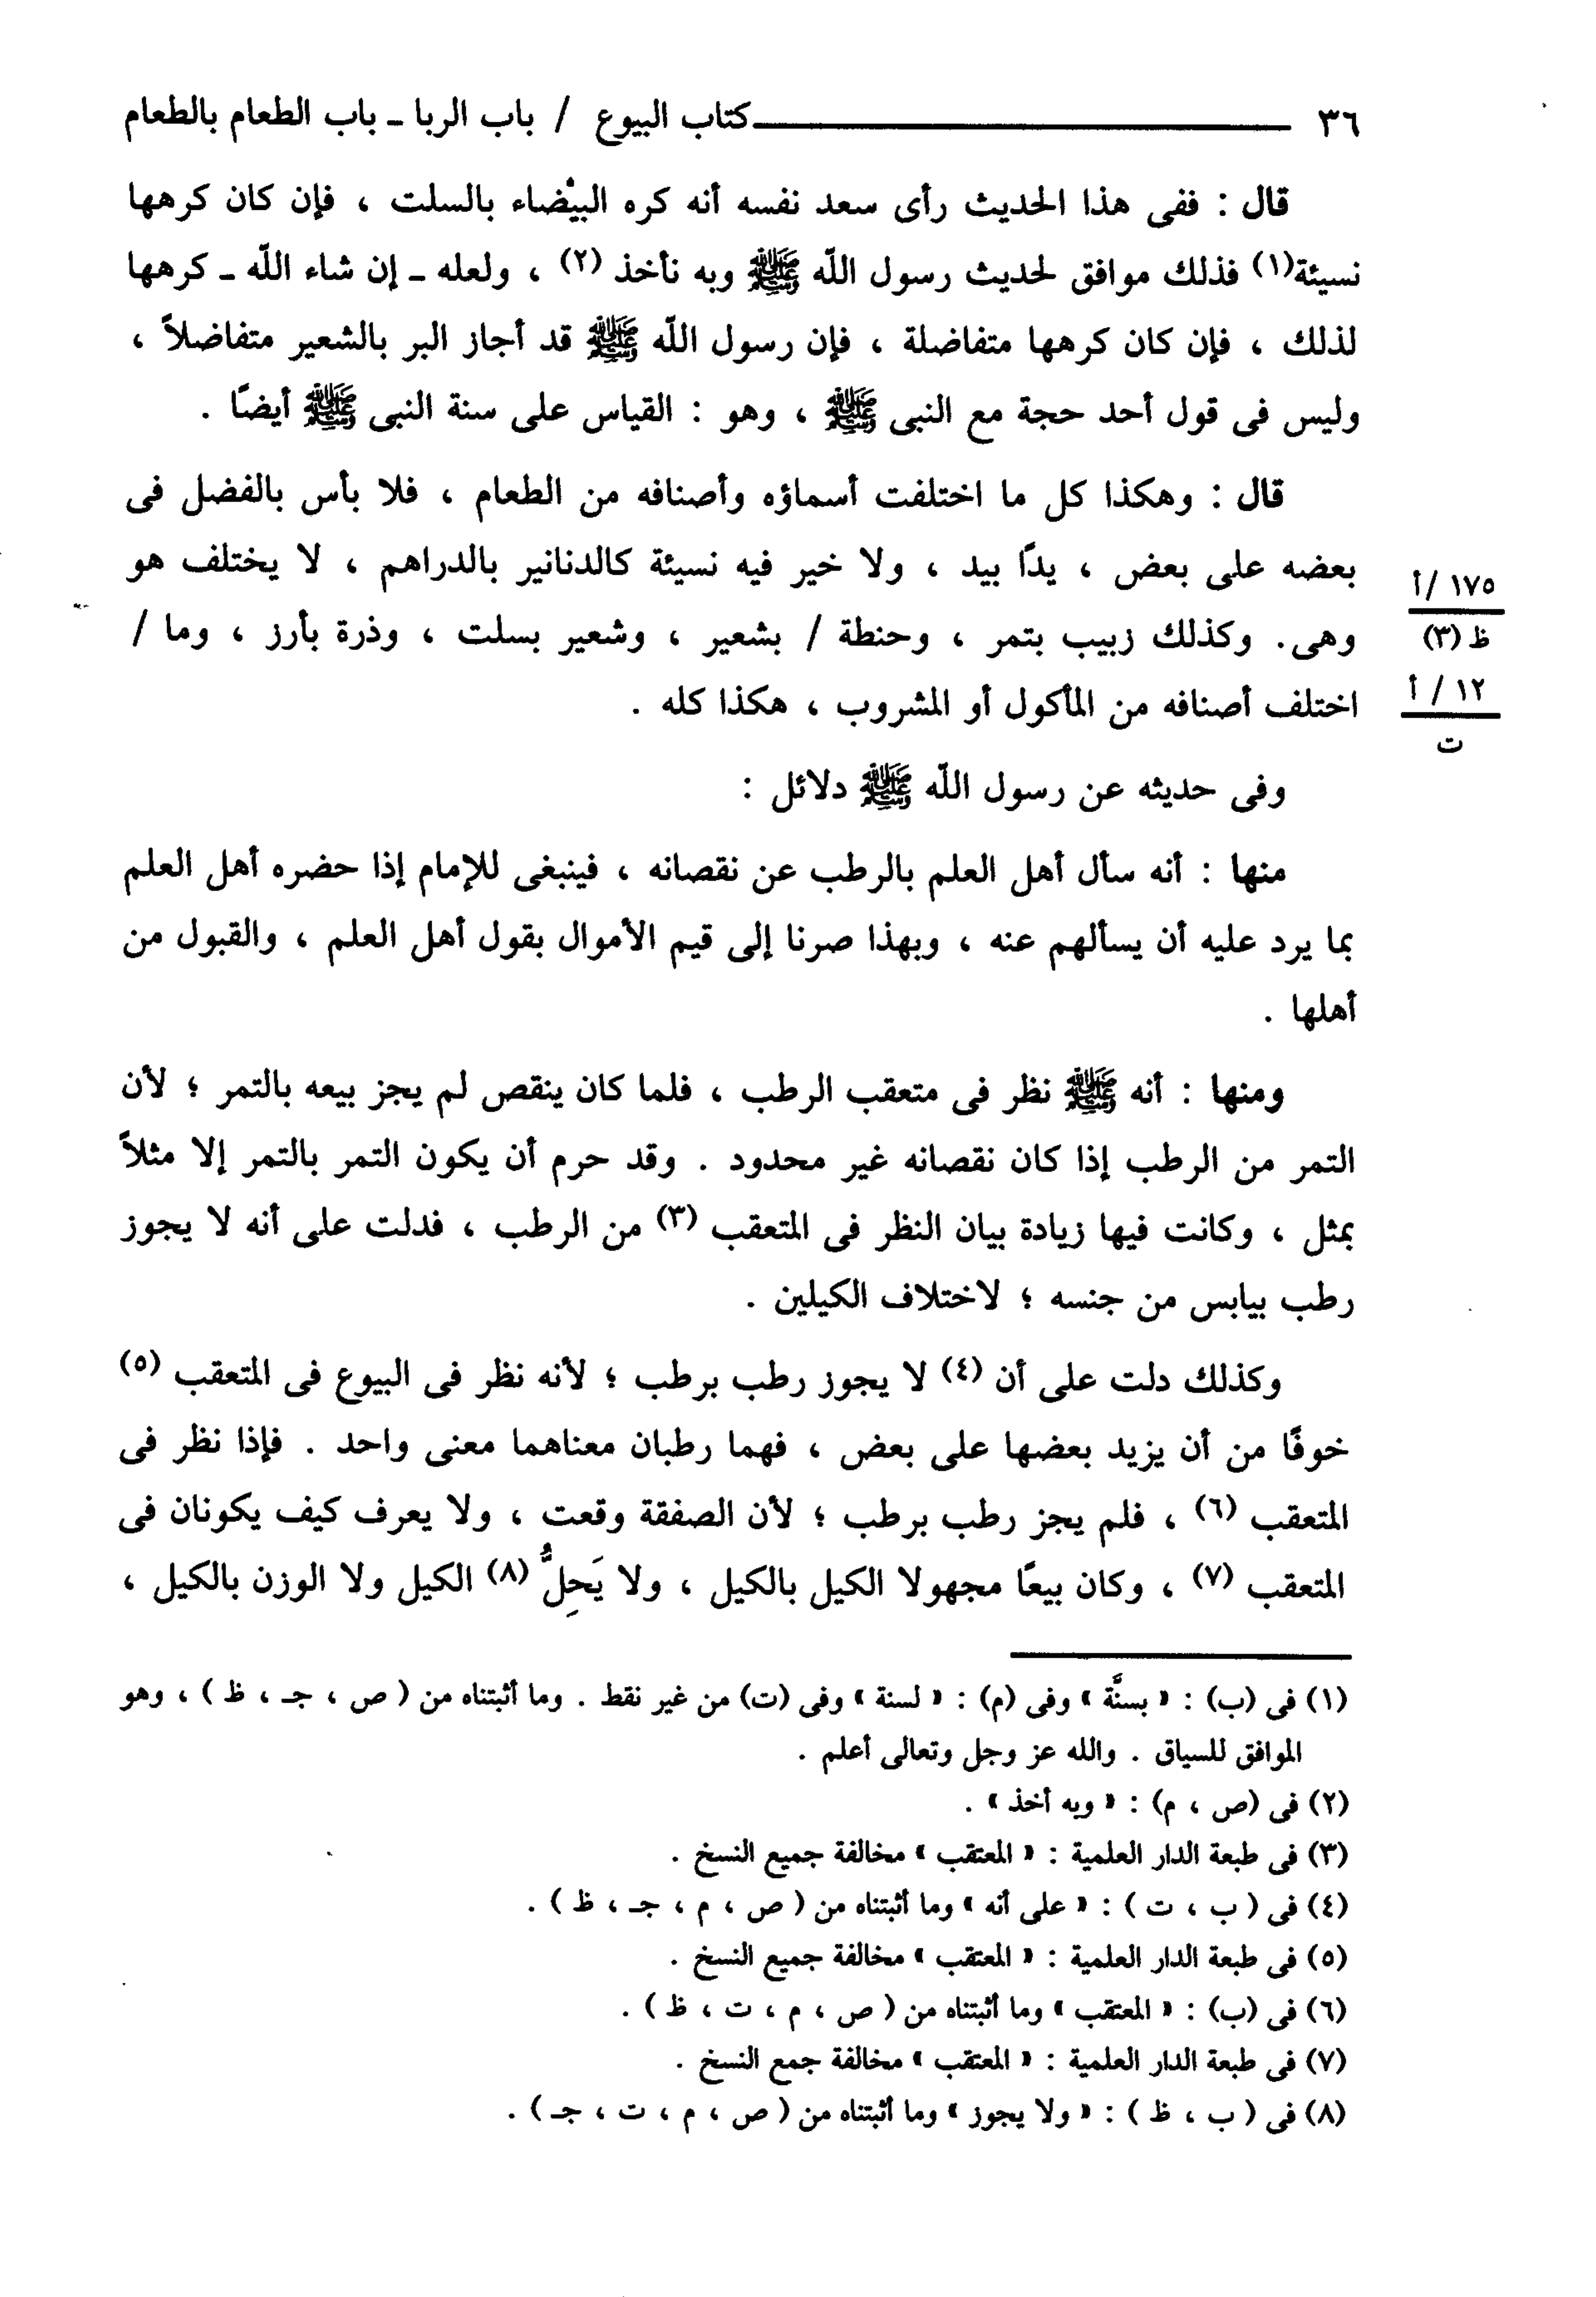 ٣٦ ــــــــــ كتاب البيوع / باب الربا ـ باب الطعام بالطعام
قال : ففى هذا الحديث رأى سعد نفسه أنه كره البيْضاء بالسلت ، فإن كان كرهها
نسيئة(١) فذلك موافق لحديث رسول اللّه ﷺ وبه نأخذ (٢) ، ولعله ـ إن شاء اللّه ـ كرهها
لذلك ، فإن كان كرهها متفاضلة ، فإن رسول اللّه ﷺ قد أجاز البر بالشعير متفاضلاً ،
وليس فى قول أحد حجة مع النبى ﷺ ، وهو : القياس على سنة النبى ﷺ أيضًا .
قال : وهكذا كل ما اختلفت أسماؤه وأصنافه من الطعام ، فلا بأس بالفضل فى
بعضه على بعض ، يدًا بيد ، ولا خير فيه نسيئة كالدنانير بالدراهم ، لا يختلف هو
١٧٥ /أ
وهى. وكذلك زبيب بتمر ، وحنطة / بشعير ، وشعير بسلت ، وذرة بأرز ، وما /
ظ (٣)
اختلف أصنافه من المأكول أو المشروب ، هكذا كله .
١٢ / أ
ت
وفى حديثه عن رسول اللّه ﷺ دلائل :
منها : أنه سأل أهل العلم بالرطب عن نقصانه ، فينبغى للإمام إذا حضره أهل العلم
بما يرد عليه أن يسألهم عنه ، وبهذا صرنا إلى قيم الأموال بقول أهل العلم ، والقبول من
أهلها .
ومنها : أنه ﷺ نظر فى متعقب الرطب ، فلما كان ينقص لم يجز بيعه بالتمر ؛ لأن
التمر من الرطب إذا كان نقصانه غير محدود . وقد حرم أن يكون التمر بالتمر إلا مثلاً
بمثل ، وكانت فيها زيادة بيان النظر فى المتعقب (٣) من الرطب ، فدلت على أنه لا يجوز
رطب بيابس من جنسه ؛ لاختلاف الكيلين .
وكذلك دلت على أن (٤) لا يجوز رطب برطب ؛ لأنه نظر فى البيوع فى المتعقب (٥)
خوفًا من أن يزيد بعضها على بعض ، فهما رطبان معناهما معنى واحد . فإذا نظر فى
المتعقب (٦) ، فلم يجز رطب برطب ؛ لأن الصفقة وقعت ، ولا يعرف كيف يكونان فى
المتعقب (٧) ، وكان بيعًا مجهولا الكيل بالكيل ، ولا يَحِلُّ (٨) الكيل ولا الوزن بالكيل ،
(١) فى (ب) : « بسنَّة » وفى (م) : « لسنة » وفى (ت) من غير نقط . وما أثبتناه من ( ص ، جـ ، ظ ) ، وهو
الموافق للسياق . والله عز وجل وتعالى أعلم .
(٢) فى (ص ، م) : « وبه أخذ » .
(٣) فى طبعة الدار العلمية : « المعتقب » مخالفة جميع النسخ .
(٤) فى ( ب ، ت ) : « على أنه » وما أثبتناه من ( ص ، م ، جـ ، ظ ) .
(٥) فى طبعة الدار العلمية : « المعتقب » مخالفة جميع النسخ .
(٦) فى (ب) : « المعتقب » وما أثبتناه من ( ص ، م ، ت ، ظ ) .
(٧) فى طبعة الدار العلمية : « المعتقب » مخالفة جمع النسخ .
(٨) فى ( ب ، ظ ) : « ولا يجوز » وما أثبتناه من ( ص ، م ، ت ، جـ ) .